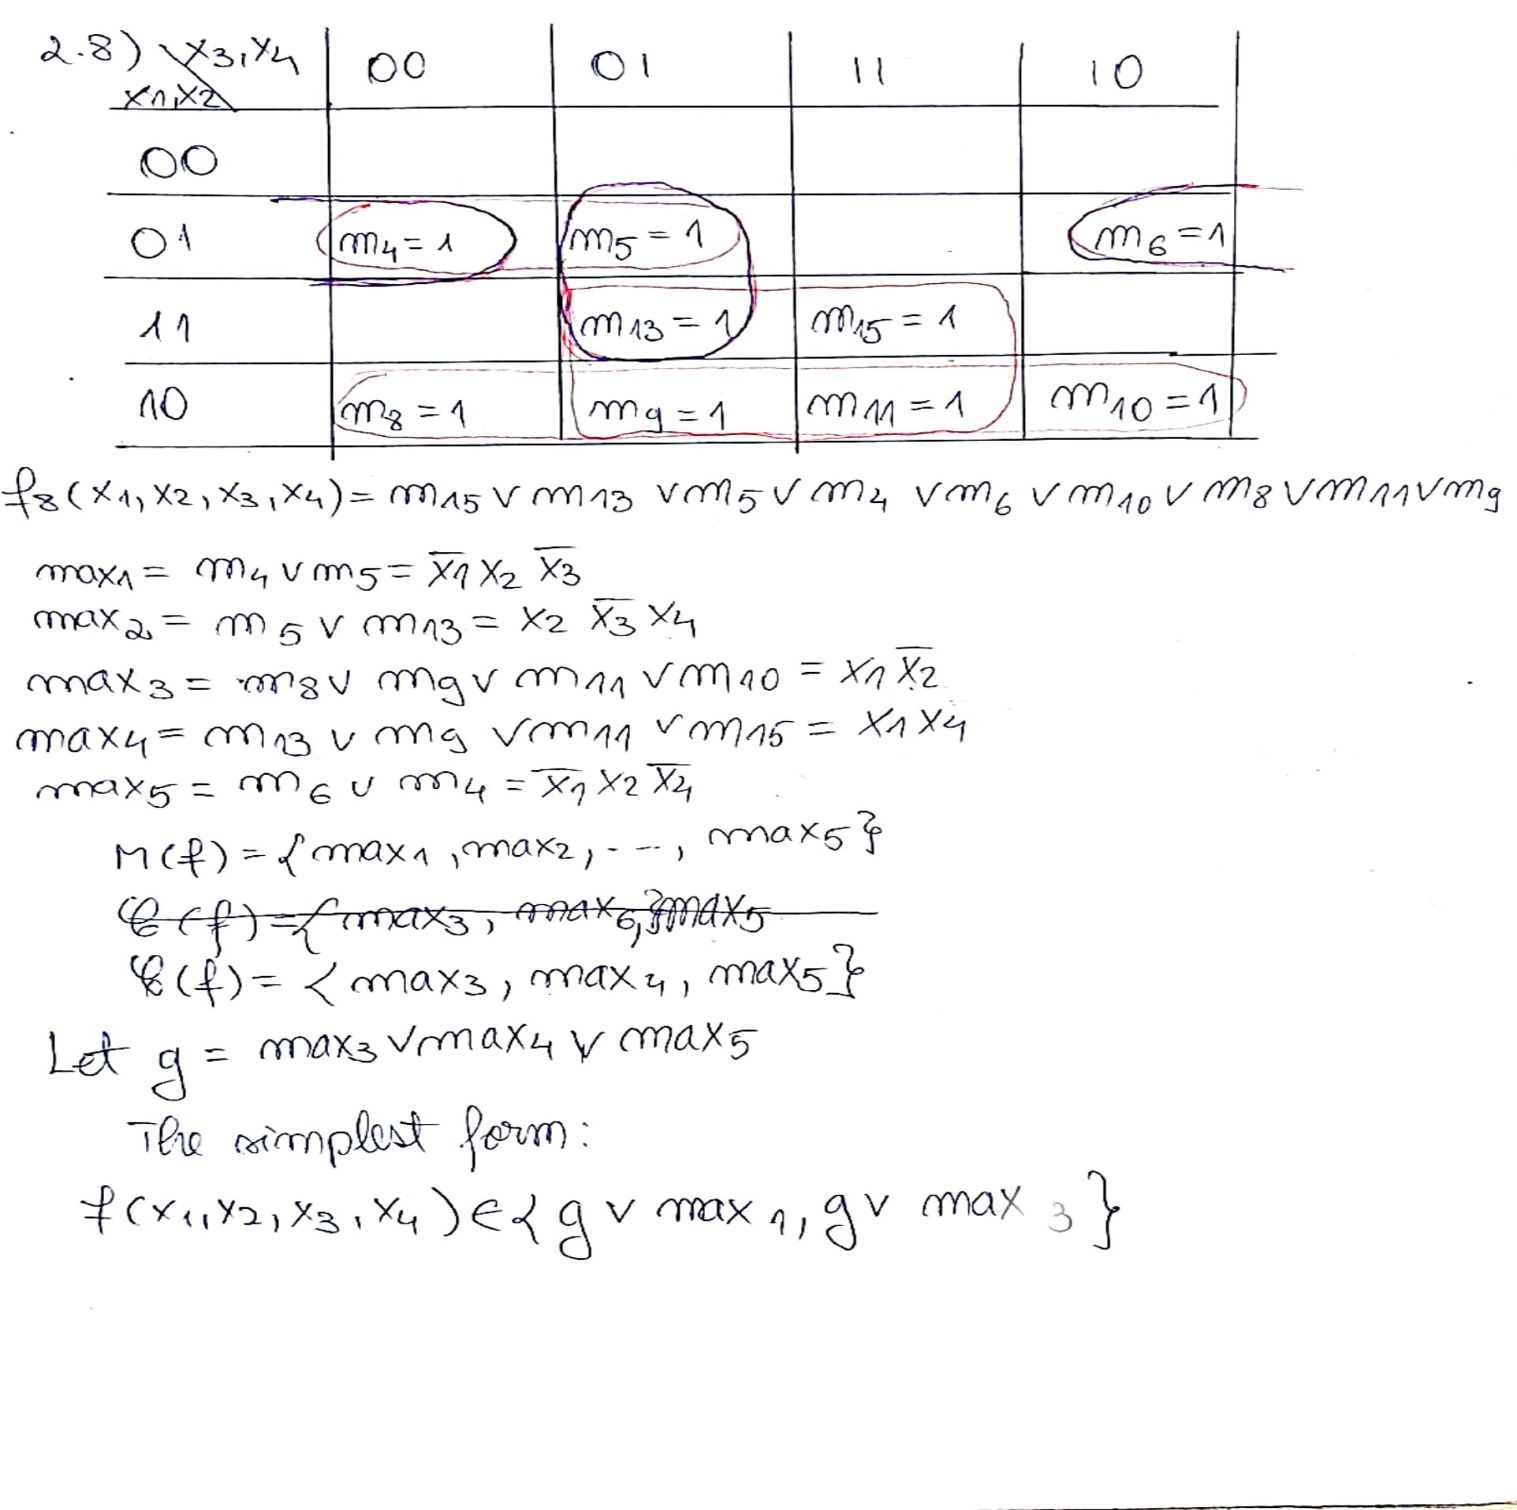 2.8) x3,x4 00 01 11 10
x1,x2
00
01 m4=1 m5=1 m6=1
11 m13=1 m15=1
10 m8=1 m9=1 m11=1 m10=1
f8(x1,x2,x3,x4)= m15 ∨ m13 ∨ m5 ∨ m4 ∨ m6 ∨ m10 ∨ m8 ∨ m11 ∨ m9
max1 = m4 ∨ m5 = x̅1 x2 x̅3
max2 = m5 ∨ m13 = x2 x̅3 x4
max3 = m8 ∨ m9 ∨ m11 ∨ m10 = x1 x̅2
max4 = m13 ∨ m9 ∨ m11 ∨ m15 = x1 x4
max5 = m6 ∨ m4 = x̅1 x2 x̅4
M(f) = {max1, max2, ---, max5}
C(f) = {max3, max6,} max5
C(f) = {max3, max4, max5}
Let g = max3 ∨ max4 ∨ max5
The simplest form:
f(x1,x2,x3,x4) ∈ {g ∨ max1, g ∨ max3}